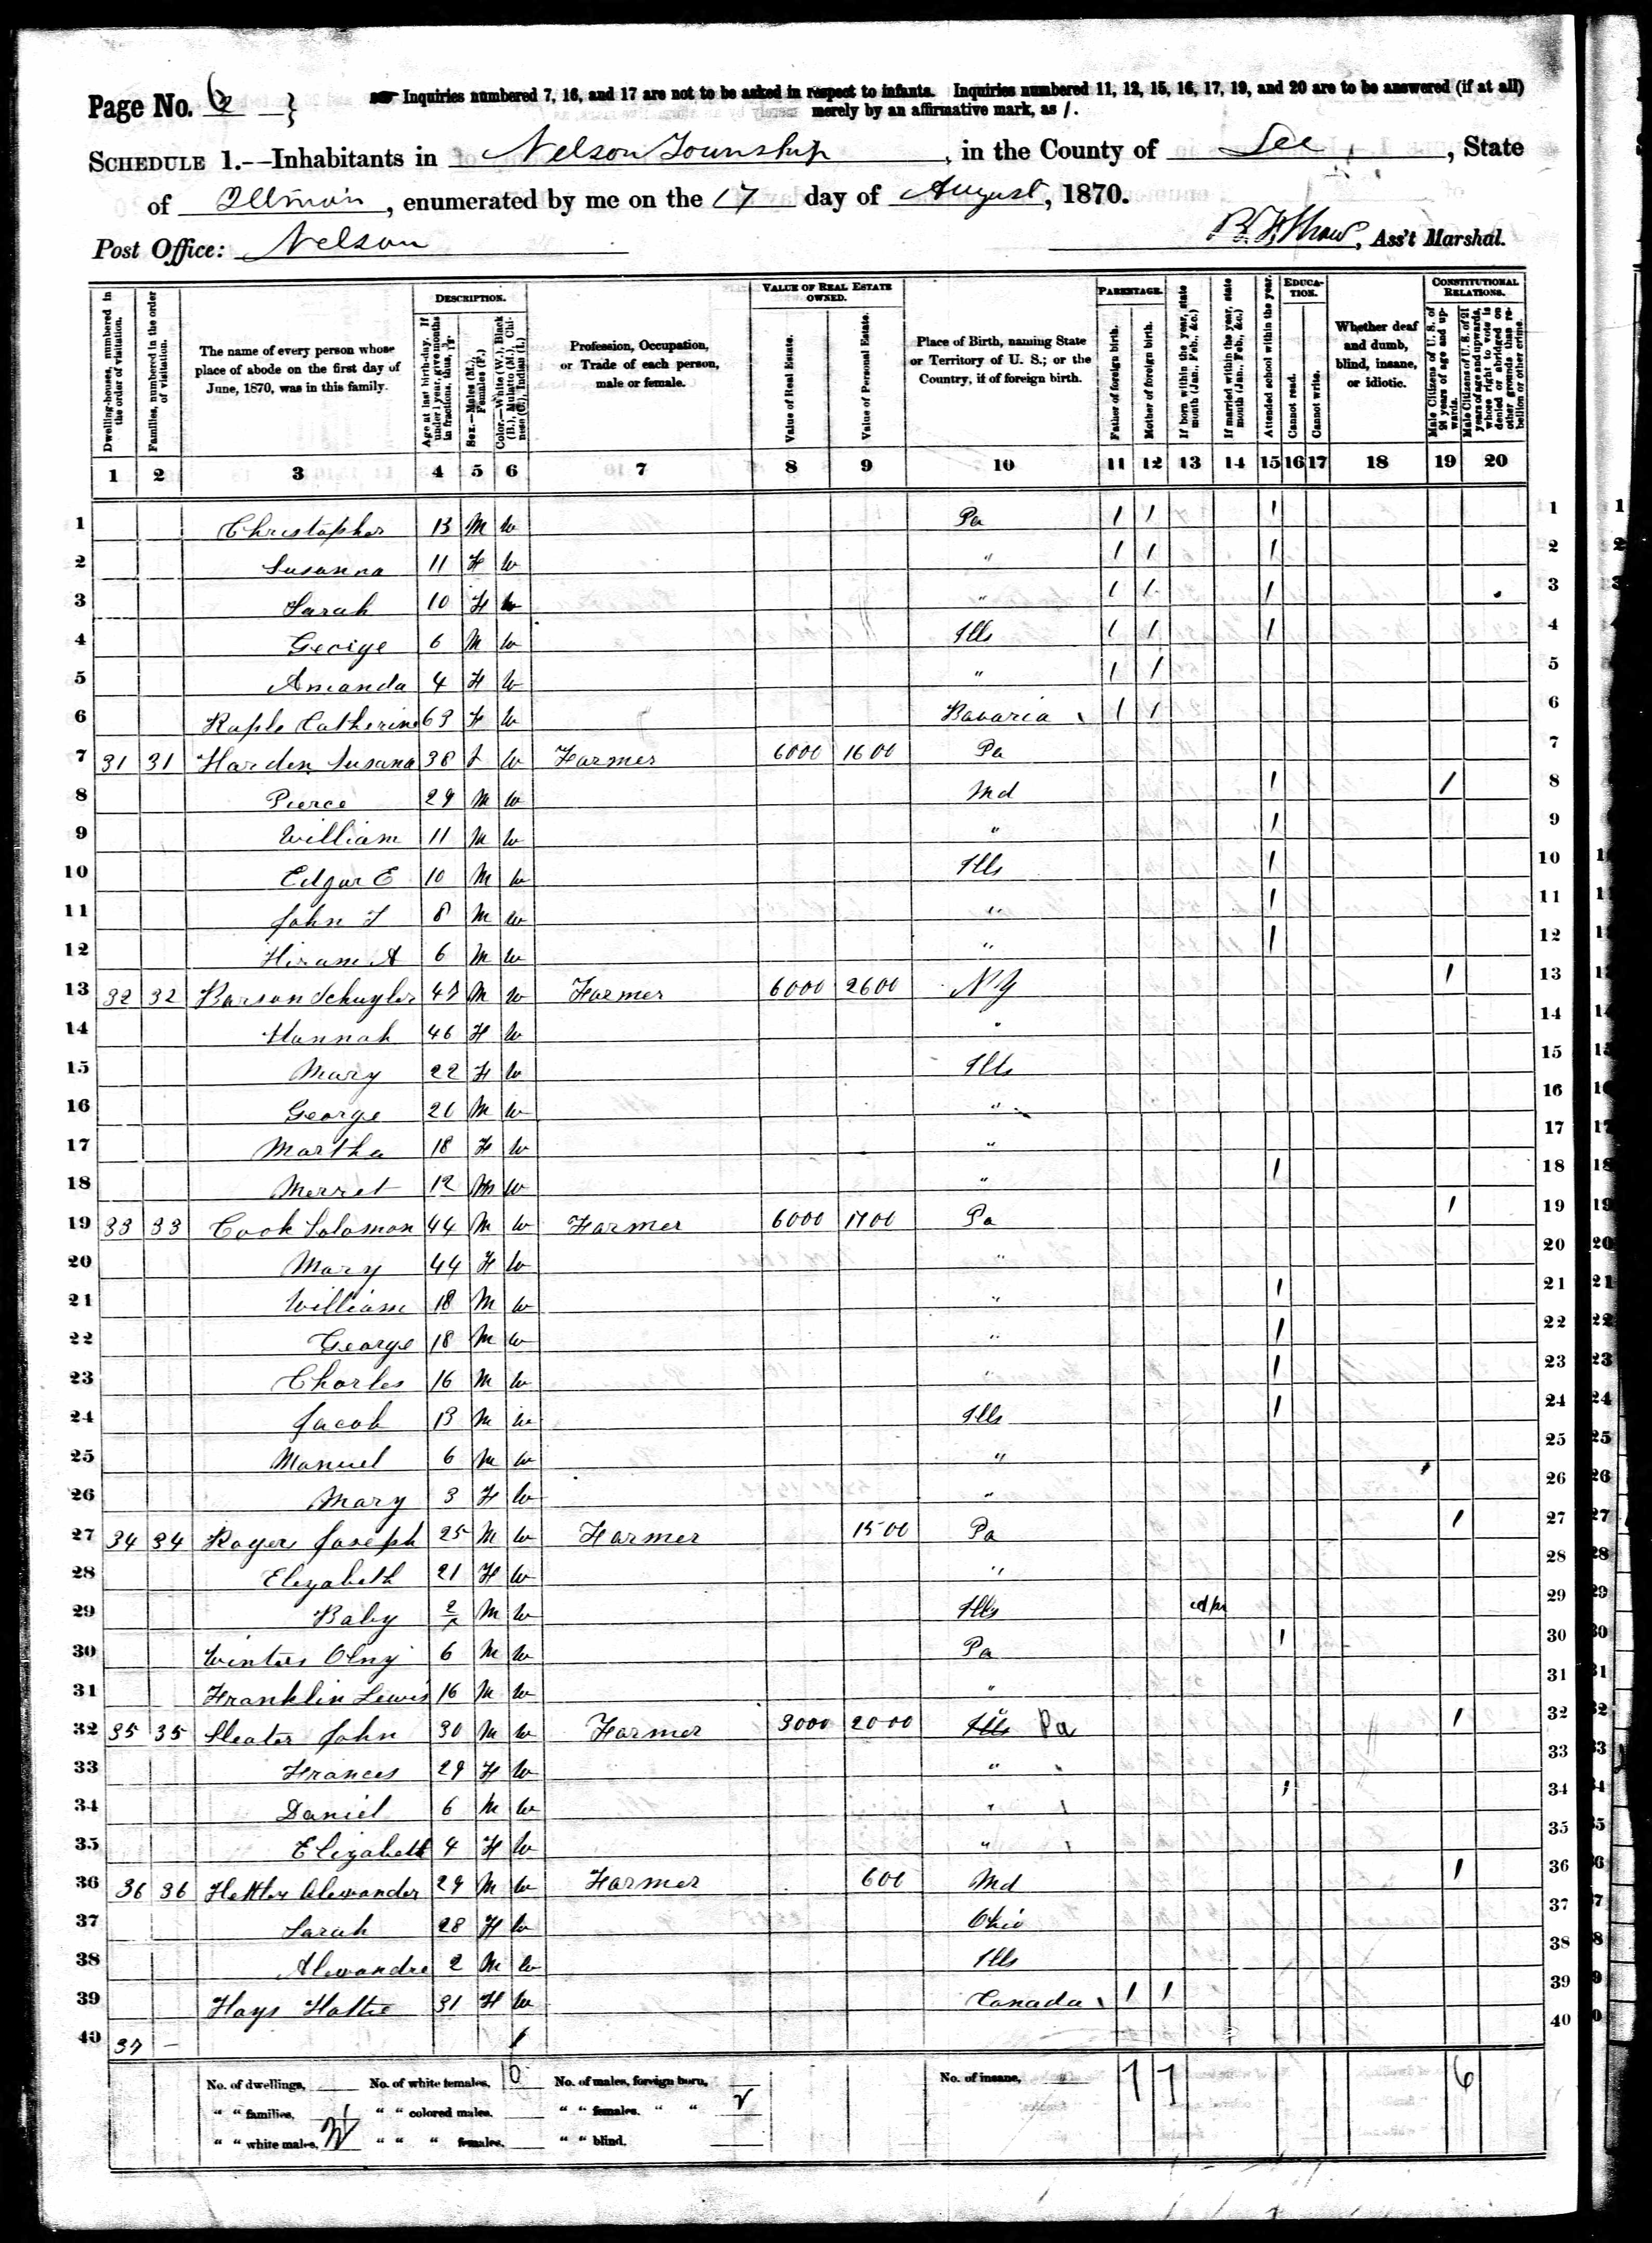 Page No. 6 } Inquiries numbered 7, 16, and 17 are not to be asked in respect to infants. Inquiries numbered 11, 12, 15, 16, 17, 19, and 20 are to be answered (if at all)
merely by an affirmative mark, as /.
SCHEDULE 1.—Inhabitants in Nelson Township, in the County of Lee, State
of Illinois, enumerated by me on the 17 day of August, 1870.
Post Office: Nelson B. F. Shaw, Ass't Marshal.
Dwelling-houses, numbered in the order of visitation.
Families, numbered in the order of visitation.
The name of every person whose place of abode on the first day of June, 1870, was in this family.
DESCRIPTION.
Age at last birth-day. If under 1 year, give months in fractions, thus,
Sex.—Males (M.), Females (F.)
Color.—White (W.), Black (B.), Mulatto (M.), Chinese (C.), Indian (I.)
Profession, Occupation, or Trade of each person, male or female.
VALUE OF REAL ESTATE OWNED.
Value of Real Estate.
Value of Personal Estate.
Place of Birth, naming State or Territory of U. S.; or the Country, if of foreign birth.
PARENTAGE.
Father of foreign birth.
Mother of foreign birth.
If born within the year, state month (Jan., Feb., &c.)
If married within the year, state month (Jan., Feb., &c.)
Attended school within the year.
EDUCATION.
Cannot read.
Cannot write.
Whether deaf and dumb, blind, insane, or idiotic.
CONSTITUTIONAL RELATIONS.
Male Citizens of U. S. of 21 years of age and upwards.
Male Citizens of U. S. of 21 years of age and upwards, whose right to vote is denied or abridged on other grounds than rebellion or other crime.
1 2 3 4 5 6 7 8 9 10 11 12 13 14 15 16 17 18 19 20
1 Christopher 13 M W Pa 1 1 1 1
2 Susanna 11 F W " 1 1 1 2
3 Sarah 10 F W " 1 1 1 3
4 George 6 M W Ills 1 1 1 4
5 Amanda 4 F W " 1 1 5
6 Raple Catherine 63 F W Bavaria 1 1 6
7 31 31 Harden Susana 38 F W Farmer 6000 1600 Pa 7
8 Pierce 29 M W Md 1 1 8
9 William 11 M W " 1 9
10 Edgar E 10 M W Ills 1 10
11 John F 8 M W " 1 11
12 Hiram A 6 M W " 1 12
13 32 32 Schuyler M W Farmer 6000 2600 N Y 1 13
14 Hannah 46 F W " 14
15 Mary 22 F W Ills 15
16 George 20 M W " 16
17 Martha 18 F W " 17
18 Merret 12 M W " 1 18
19 33 33 Cook Solomon 44 M W Farmer 6000 1700 Pa 1 19
20 Mary 44 F W " 20
21 William 18 M W " 1 21
22 George 18 M W " 1 22
23 Charles 16 M W " 1 23
24 Jacob 13 M W Ills 1 24
25 Manuel 6 M W " 25
26 Mary 3 F W " 26
27 34 34 Royer Joseph 25 M W Farmer 1500 Pa 1 27
28 Elizabeth 21 F W " 28
29 Baby M W Ills 29
30 Winters 6 M W Pa 1 30
31 Franklin Lewis 16 M W " 31
32 35 35 John 30 M W Farmer 3000 2000 Ills Pa 1 32
33 Frances 29 F W " 33
34 Daniel 6 M W " 1 34
35 Elizabeth 4 F W " 35
36 36 36 Alexander 29 M W Farmer 600 Md 1 36
37 Sarah 28 F W Ohio 37
38 Alexandre 2 M W Ills 38
39 Hays Hattie 31 F W Canada 1 1 39
40 37 — 40
No. of dwellings, No. of white females, No. of males, foreign born, No. of insane, 6
" " families, " " colored males, " " females, " "
" " white males, " " " females, " " blind,